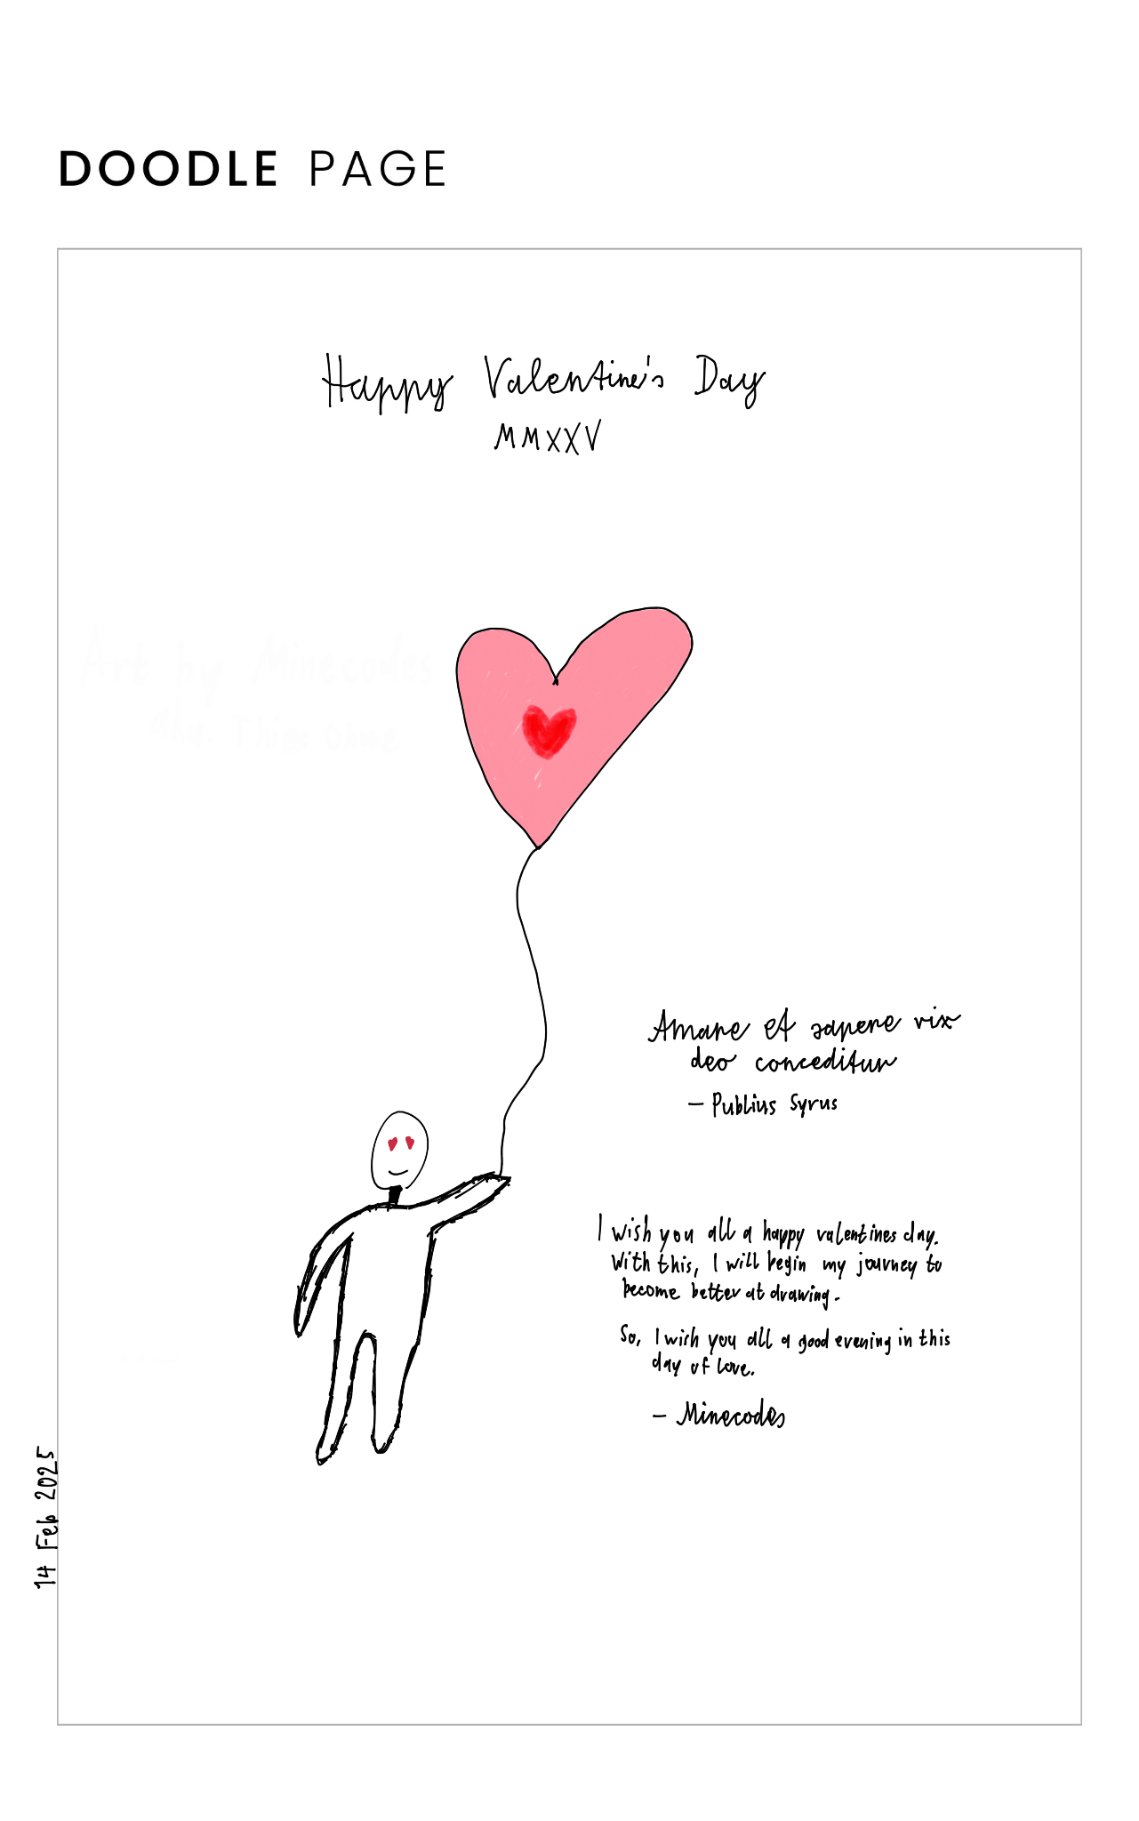 DOODLE PAGE
Happy Valentine's Day
MMXXV
Art by Minecodes
Amare et sapere vix
deo conceditur
— Publius Syrus
I wish you all a happy valentines day.
With this, I will begin my journey to
become better at drawing.
So, I wish you all a good evening in this
day of love.
— Minecodes
14 Feb 2025